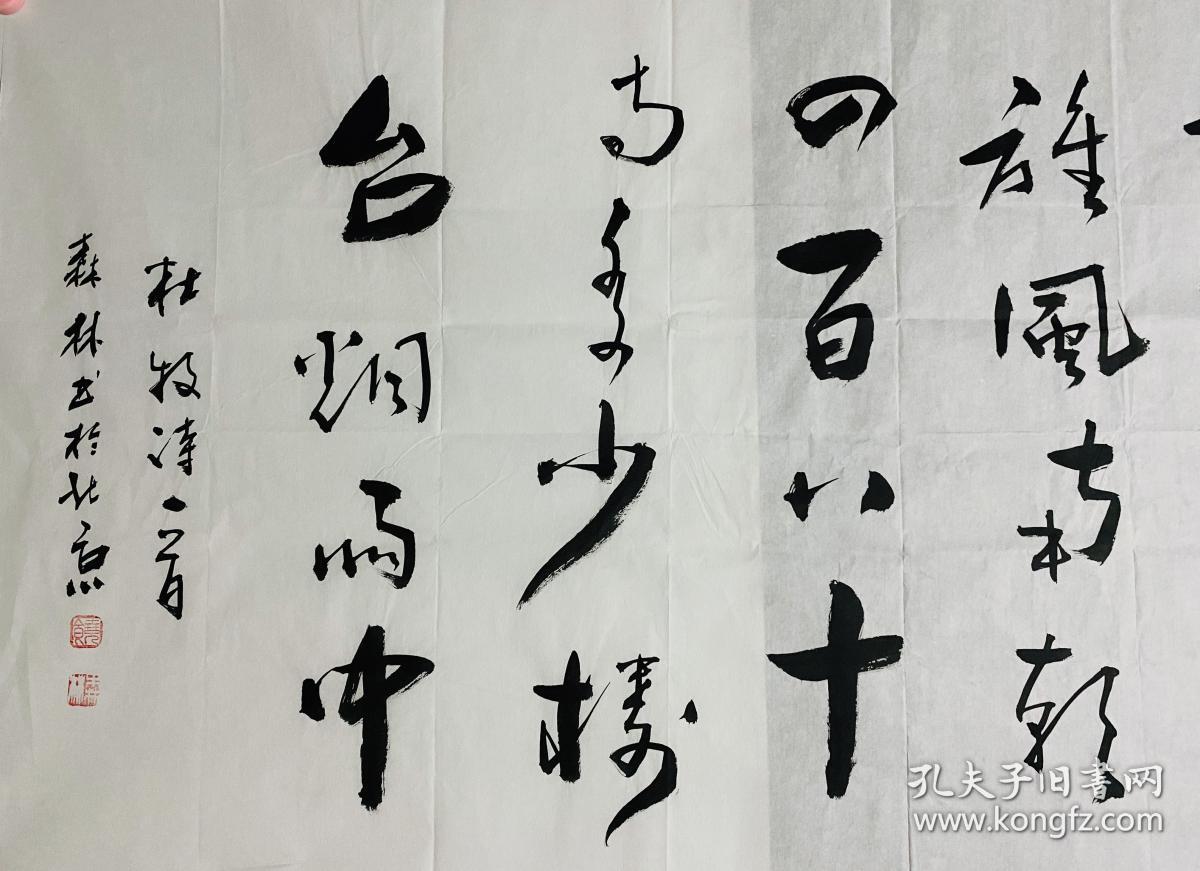 旗風南朝
四百八十
寺多少楼
台烟雨中
杜牧诗一首
森林书於北京
孔夫子旧書网
www.kongfz.com